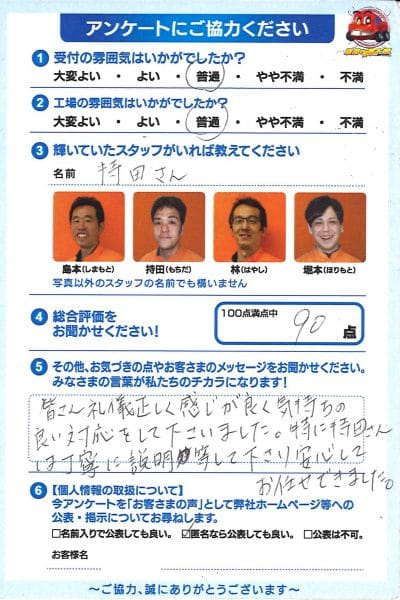 アンケートにご協力ください
1 受付の雰囲気はいかがでしたか?
大変よい ・ よい ・ 普通 ・ やや不満 ・ 不満
2 工場の雰囲気はいかがでしたか?
大変よい ・ よい ・ 普通 ・ やや不満 ・ 不満
3 輝いていたスタッフがいれば教えてください
名前 持田さん
島本(しまもと) 持田(もちだ) 林(はやし) 堀本(ほりもと)
写真以外のスタッフの名前でも構いません
4 総合評価を
お聞かせください!
100点満点中
90 点
5 その他、お気づきの点やお客さまのメッセージをお聞かせください。
みなさまの言葉が私たちのチカラになります!
皆さん礼儀正しく感じが良く気持ちの
良い対応をして下さいました。特に持田さん
は丁寧に説明等して下さり安心して
お任せできました。
6 【個人情報の取扱について】
今アンケートを「お客さまの声」として弊社ホームページ等への
公表・掲示についてお尋ねします。
□名前入りで公表しても良い。 ☑匿名なら公表しても良い。 □公表は不可。
お客様名
〜ご協力、誠にありがとうございます〜